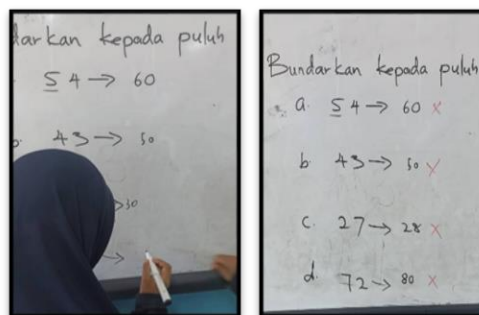 darkan kepada puluh
5 4 → 60
b. 43 → 50
→ 30
→
Bundarkan kepada puluh
a. 5 4 → 60 x
b. 43 → 50 x
c. 27 → 28 x
d. 72 → 80 x